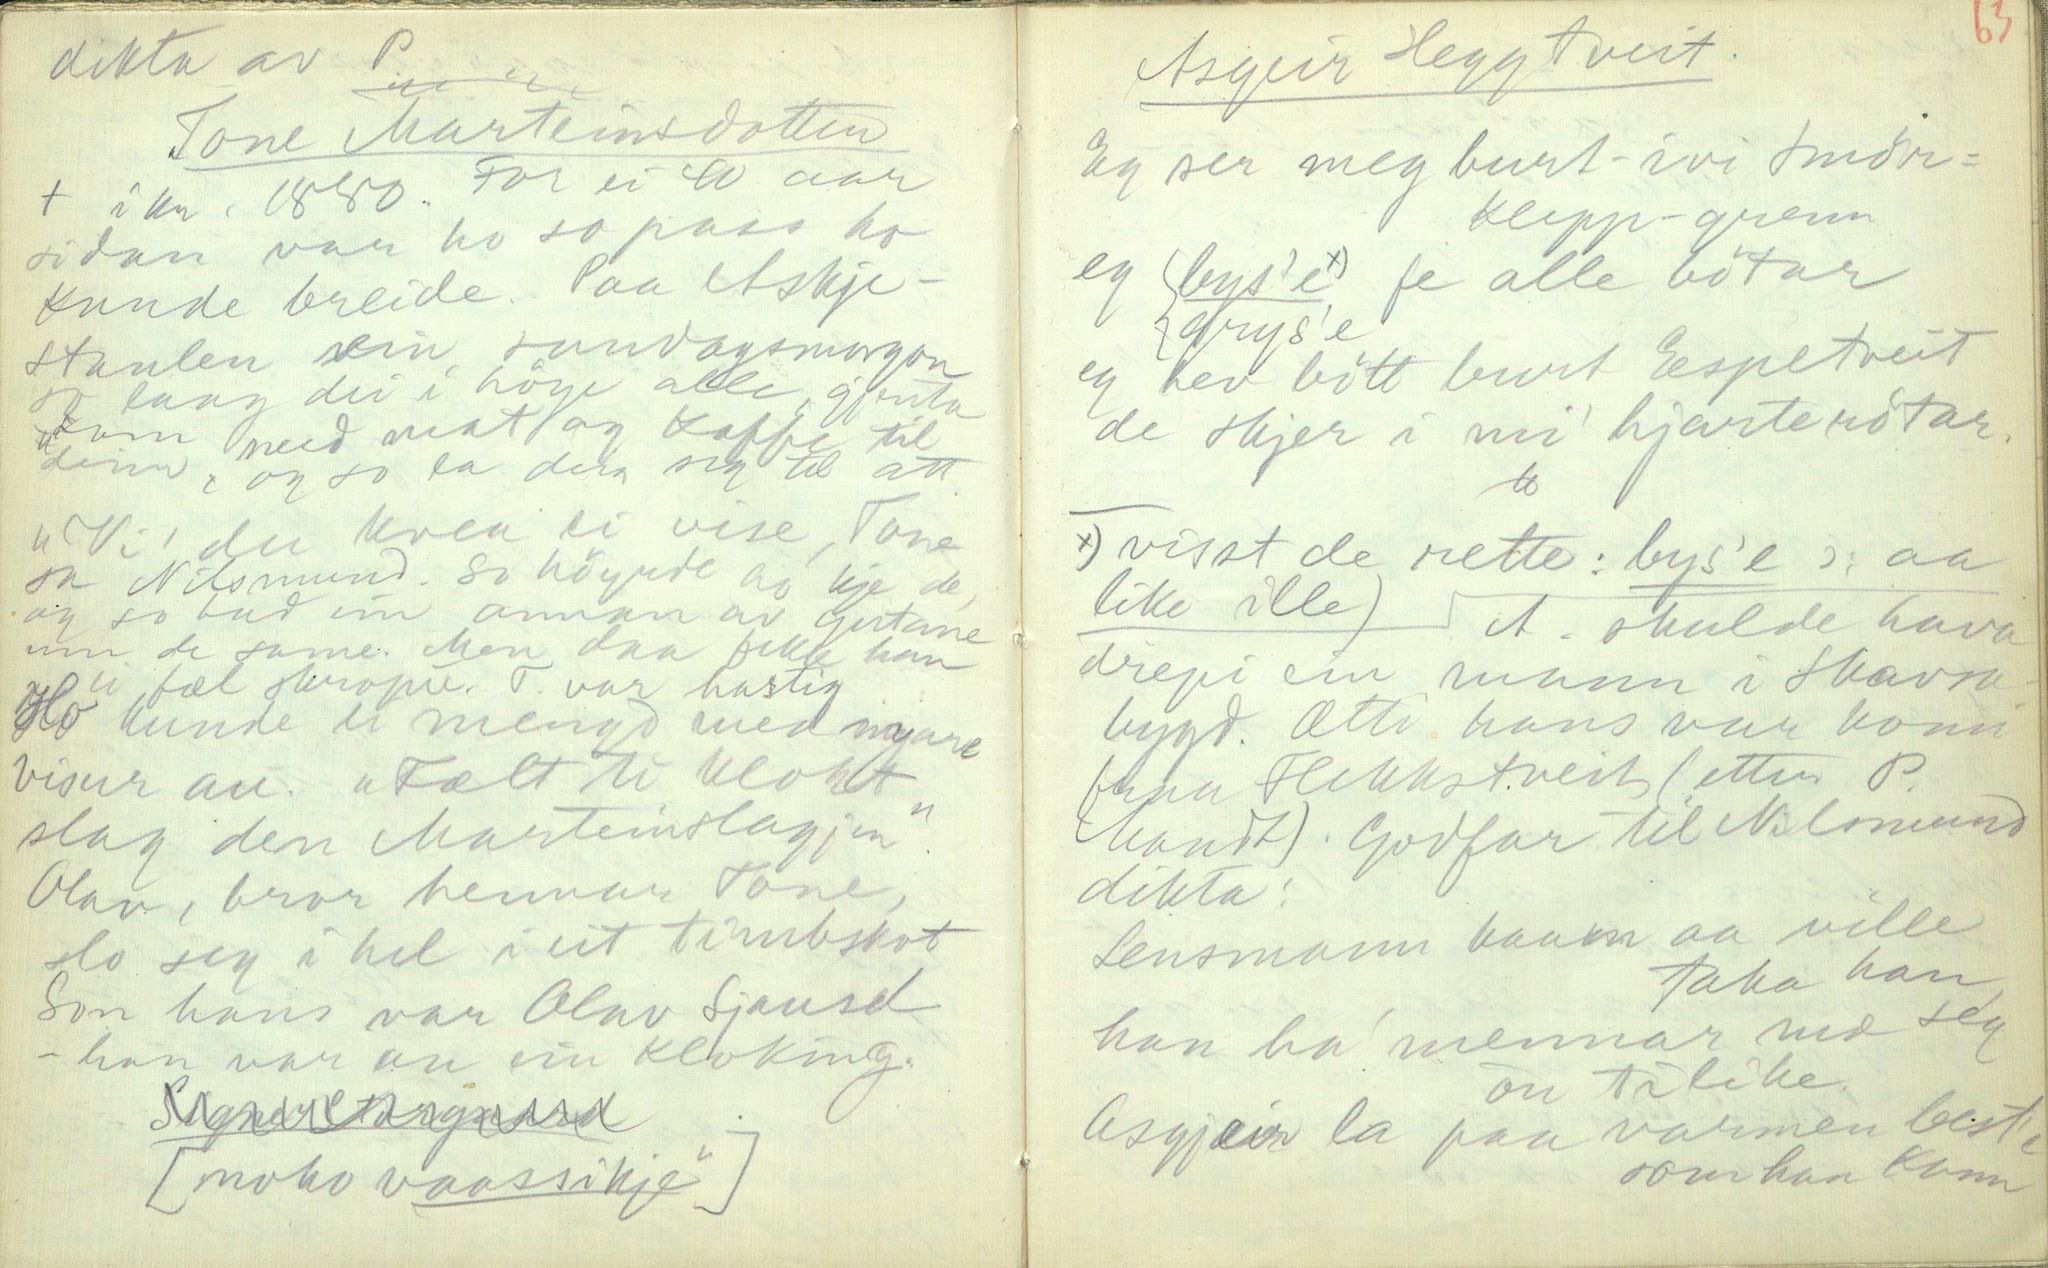 dikta av P
Tone Marteinsdotter
† i kr. 1880. For ei 40 aar
sidan var ho so pass ho
kunde breide. Paa Askje-
staulen ein sundagsmorgon
so laag dei i höye alle, gjenta
kom med mat og kaffe til
deim, og so la dei seg til att
"Vi' du kvea ei vise, Tone
sa Nilsmund. So höyrde ho kje de,
og so bad ein annan av gutane
um de same. Men daa fekk han
"ei fæl skropu". T. var hastig
Ho kunde ei mengd med nyare
visur au. "Fælt til klokt
slag den Marteinslagjen"
Olav, bror hennar Tone,
slo seg i hel i eit timbskot
Son hans var Olav Sjausd
- han var au ein kloking.
[moko vaassikje"]
63
Asgeir Heggtveit.
Eg ser meg burt-ivi Smör=
klepp-grenn
eg {bys'e x) fe alle bötar
{grys'e
eg hev bött burt Espetveit
de skjer i mi' hjarterötar.
x) visst de rette: bys'e ɔ: aa
like ille) A. skulde hava
drepi ein mann i Skavsa-
bygd. Ætti hans var komi
fraa Flekkstveit (etter P.
Mandt). Godfar til Nilsmund
dikta:
Lensmann kaam aa ville
taka han,
han ha' mennar med seg
ou tilike.
Asgjeir la paa varmen best'e
som han kann